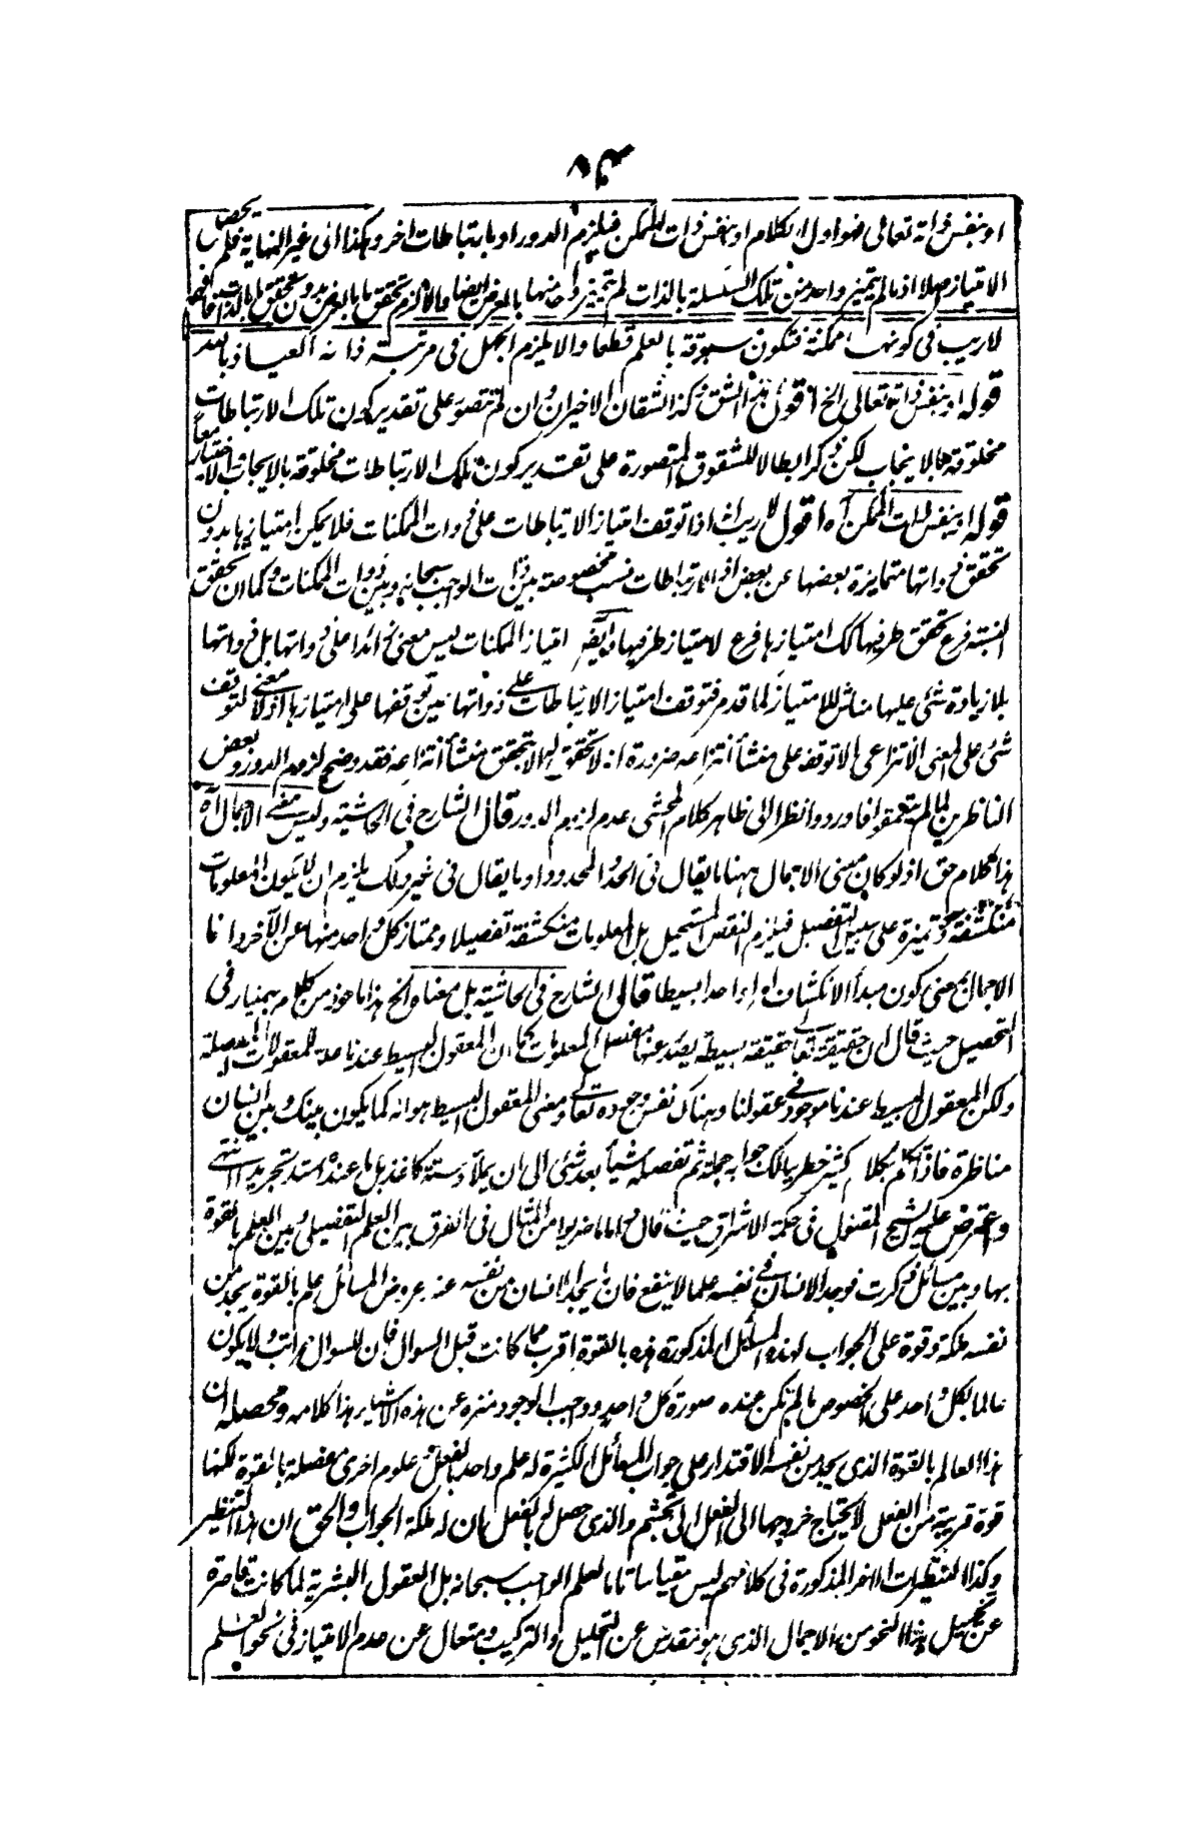 او بنفس ذاته تعالى فهو اول الكلام او بنفس ذات الممكن فيلزم الدور او بارتباطات اخر وهكذا الى غير النهاية فلم يحصل
الامتياز اصلا اذ ما لم يتميز واحد من تلك السلسلة بالذات لم يتميز واحد منها بالعرض ايضا والا لزم تحقق ما بالعرض بدون تحقق ما بالذات فافهم
لا ريب في كونها ممكنة فتكون مسبوقة بالعلم قطعا والا يلزم الجهل في مرتبة ذاته العياذ بالله
قوله او بنفس ذاته تعالى الخ اقول هذا الشق وكذا الشقان الاخيران وان لم تتصور على تقدير كون تلك الارتباطات
مخلوقة بالايجاب لكن ذكر ابطالا للشقوق المتصورة على تقدير كون تلك الارتباطات مخلوقة بالايجاب والاختيار معا
قوله او بنفس ذات الممكن آه اقول لا ريب انه اذا توقف امتياز الارتباطات على ذوات الممكنات فلا يمكن امتيازها بدون
تحقق ذواتها متمايزة بعضها عن بعض اذ الارتباطات نسب مخصوصة بين ذات الواجب سبحانه وبين ذوات الممكنات وكما ان تحقق
النسبة فرع تحقق طرفيها كك امتيازها فرع لامتياز طرفيها وايضا امتياز الممكنات ليس معنى زائدا على ذواتها بل ذواتها
بلا زيادة شئ عليها مناش للامتياز لما قدم فتوقف امتياز الارتباطات على ذواتها عين توقفها على امتيازها اذ لا معنى لتوقف
شئ على المعنى الانتزاعي الا توقفه على منشأ انتزاعه ضرورة انه لا تحقق له الا بتحقق منشأ انتزاعه فقد وضح لزوم الدور وبعض
الناظرين لما لم يتعمقوا فاوردوا نظرا الى ظاهر كلام المحشى عدم لزوم الدور قال الشارح في الحاشية وليس معنى الاجمال آه
هذا كلام حق اذ لو كان معنى الاجمال ههنا ما يقال في الحد والمحدود او ما يقال في غير ذلك يلزم ان لا يكون المعلومات
منكشفة متميزة على سبيل التفصيل فيلزم النقص المستحيل بل المعلومات منكشفة تفصيلا وممتاز كل واحد منها عن الآخر وانما
الاجمال بمعنى كون مبدأ الانكشاف امرا واحدا بسيطا قال الشارح في الحاشية بل معناه الخ هذا ماخوذ من كلام بهمنيار في
التحصيل حيث قال ان حقيقته تعالى حقيقة بسيطة يصدر عنها مفصل المعلومات كما ان المعقول البسيط عندنا علة للمعقولات المفصلة
ولكن المعقول البسيط عندنا موجود في عقولنا وهناك نفس وجوده تعالى ومعنى المعقول البسيط هو انه كما يكون بينك وبين انسان
مناظرة فاذا تكلم بكلام كثير خطر ببالك جوابه جملة ثم تفصله شيأ بعد شئ الى ان يملأ دستة كاغذ بل ما عنده اشد تجريدا انتهى
واعترض عليه الشيخ المقتول في حكمة الاشراق حيث قال واما ما ضربوا من المثال في الفرق بين العلم التفصيلي وبين العلم بالقوة
بها وبين مسائل ذكرت فوجد الانسان في نفسه علما لا ينفع فان ما يجد الانسان من نفسه عند عروض المسائل علم بالقوة يجد من
نفسه ملكة وقوة على الجواب لهذه المسائل المذكورة وهذه بالقوة اقرب مما كانت قبل السوال فان للسوال مراتب ولا يكون
عالما بكل واحد على الخصوص ما لم تكن عنده صورة كل واحد وواجب الوجود منزه عن هذه الاشياء هذا كلامه ومحصله ان
هذا العالم بالقوة الذي يجد من نفسه الاقتدار على جواب المسائل الكثيرة له علم واحد بالفعل وعلوم اخرى مفصلة بالقوة لكنها
قوة قريبة من الفعل لا يحتاج خروجها الى الفعل الى تجشم والذي حصل له بالفعل بان له ملكة الجواب والحق ان هذا التنظير
وكذا التنظيرات الاخر المذكورة في كلامهم ليس مقياسا تاما لعلم الواجب سبحانه بل العقول البشرية لما كانت قاصرة
عن تخييل هذا النحو من الاجمال الذي هو متقدس عن التحليل والتركيب ومتعال عن عدم الامتياز في نحو العلم